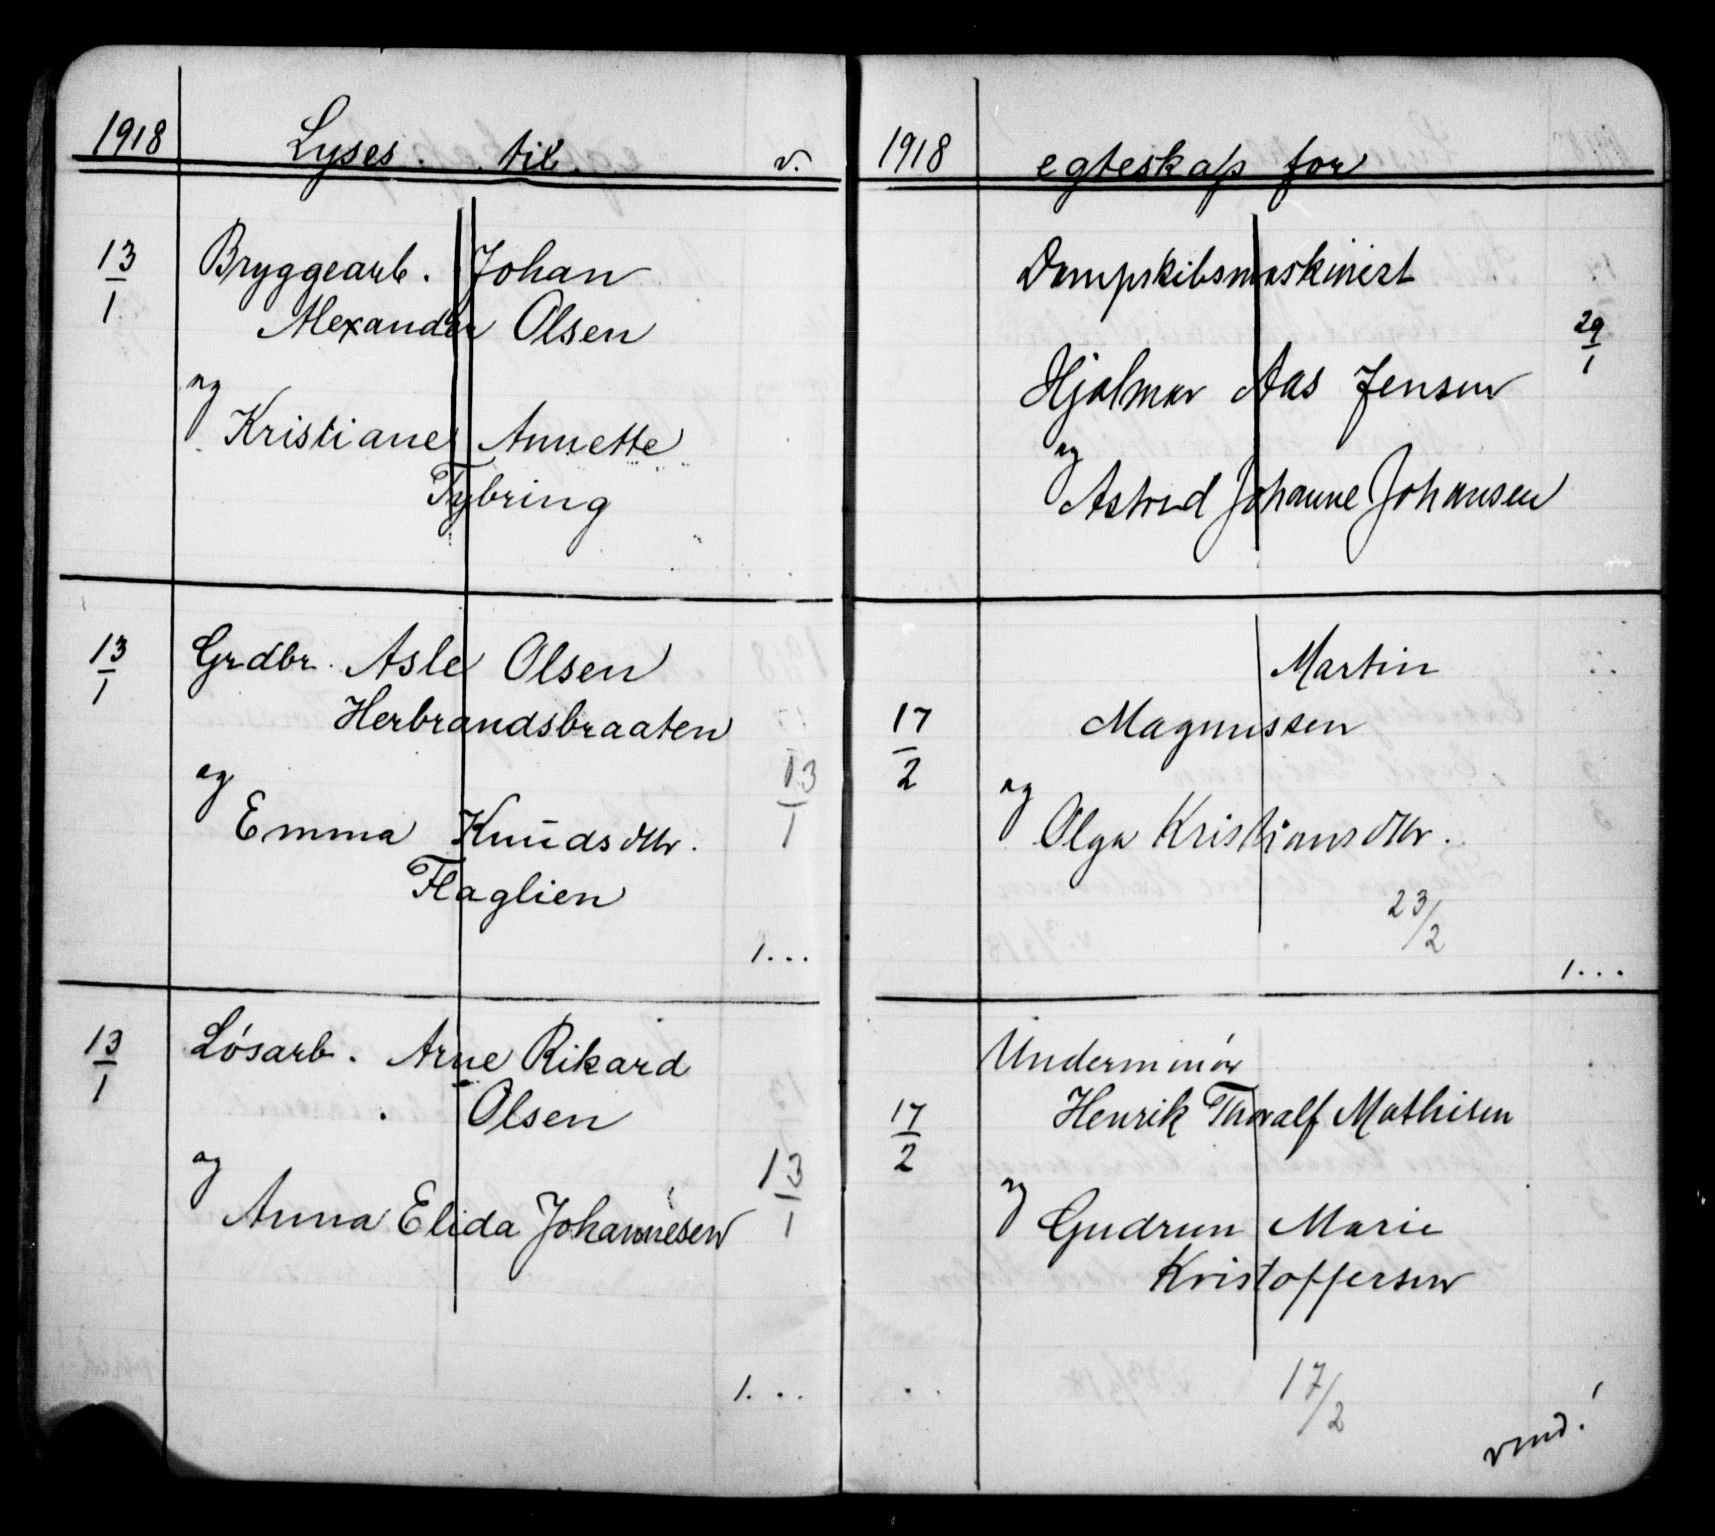 1918 Lyses til v.
13/1 Bryggearb. Johan
Alexander Olsen
og
Kristiane Annette
Tybring
13/1 Grdbr. Asle Olsen
Herbrandsbraaten
og 13/1
Emma Knudsdttr.
Flaglien
1...
13/1 Løsarb. Arne Rikard
Olsen
og 13/1
Anna Elida Johannesen
1...
1918 egteskap for
Dampskibsmaskinist
29/1
Hjalmar Aas Jensen
og
Astrid Johanne Johansen
Martin
17/2 Magnussen
og
Olga Kristiansdttr.
23/2
1...
Underminør
17/2 Henrik Thoralf Mathisen
og
Gudrun Marie
Kristoffersen
17/2
vend!